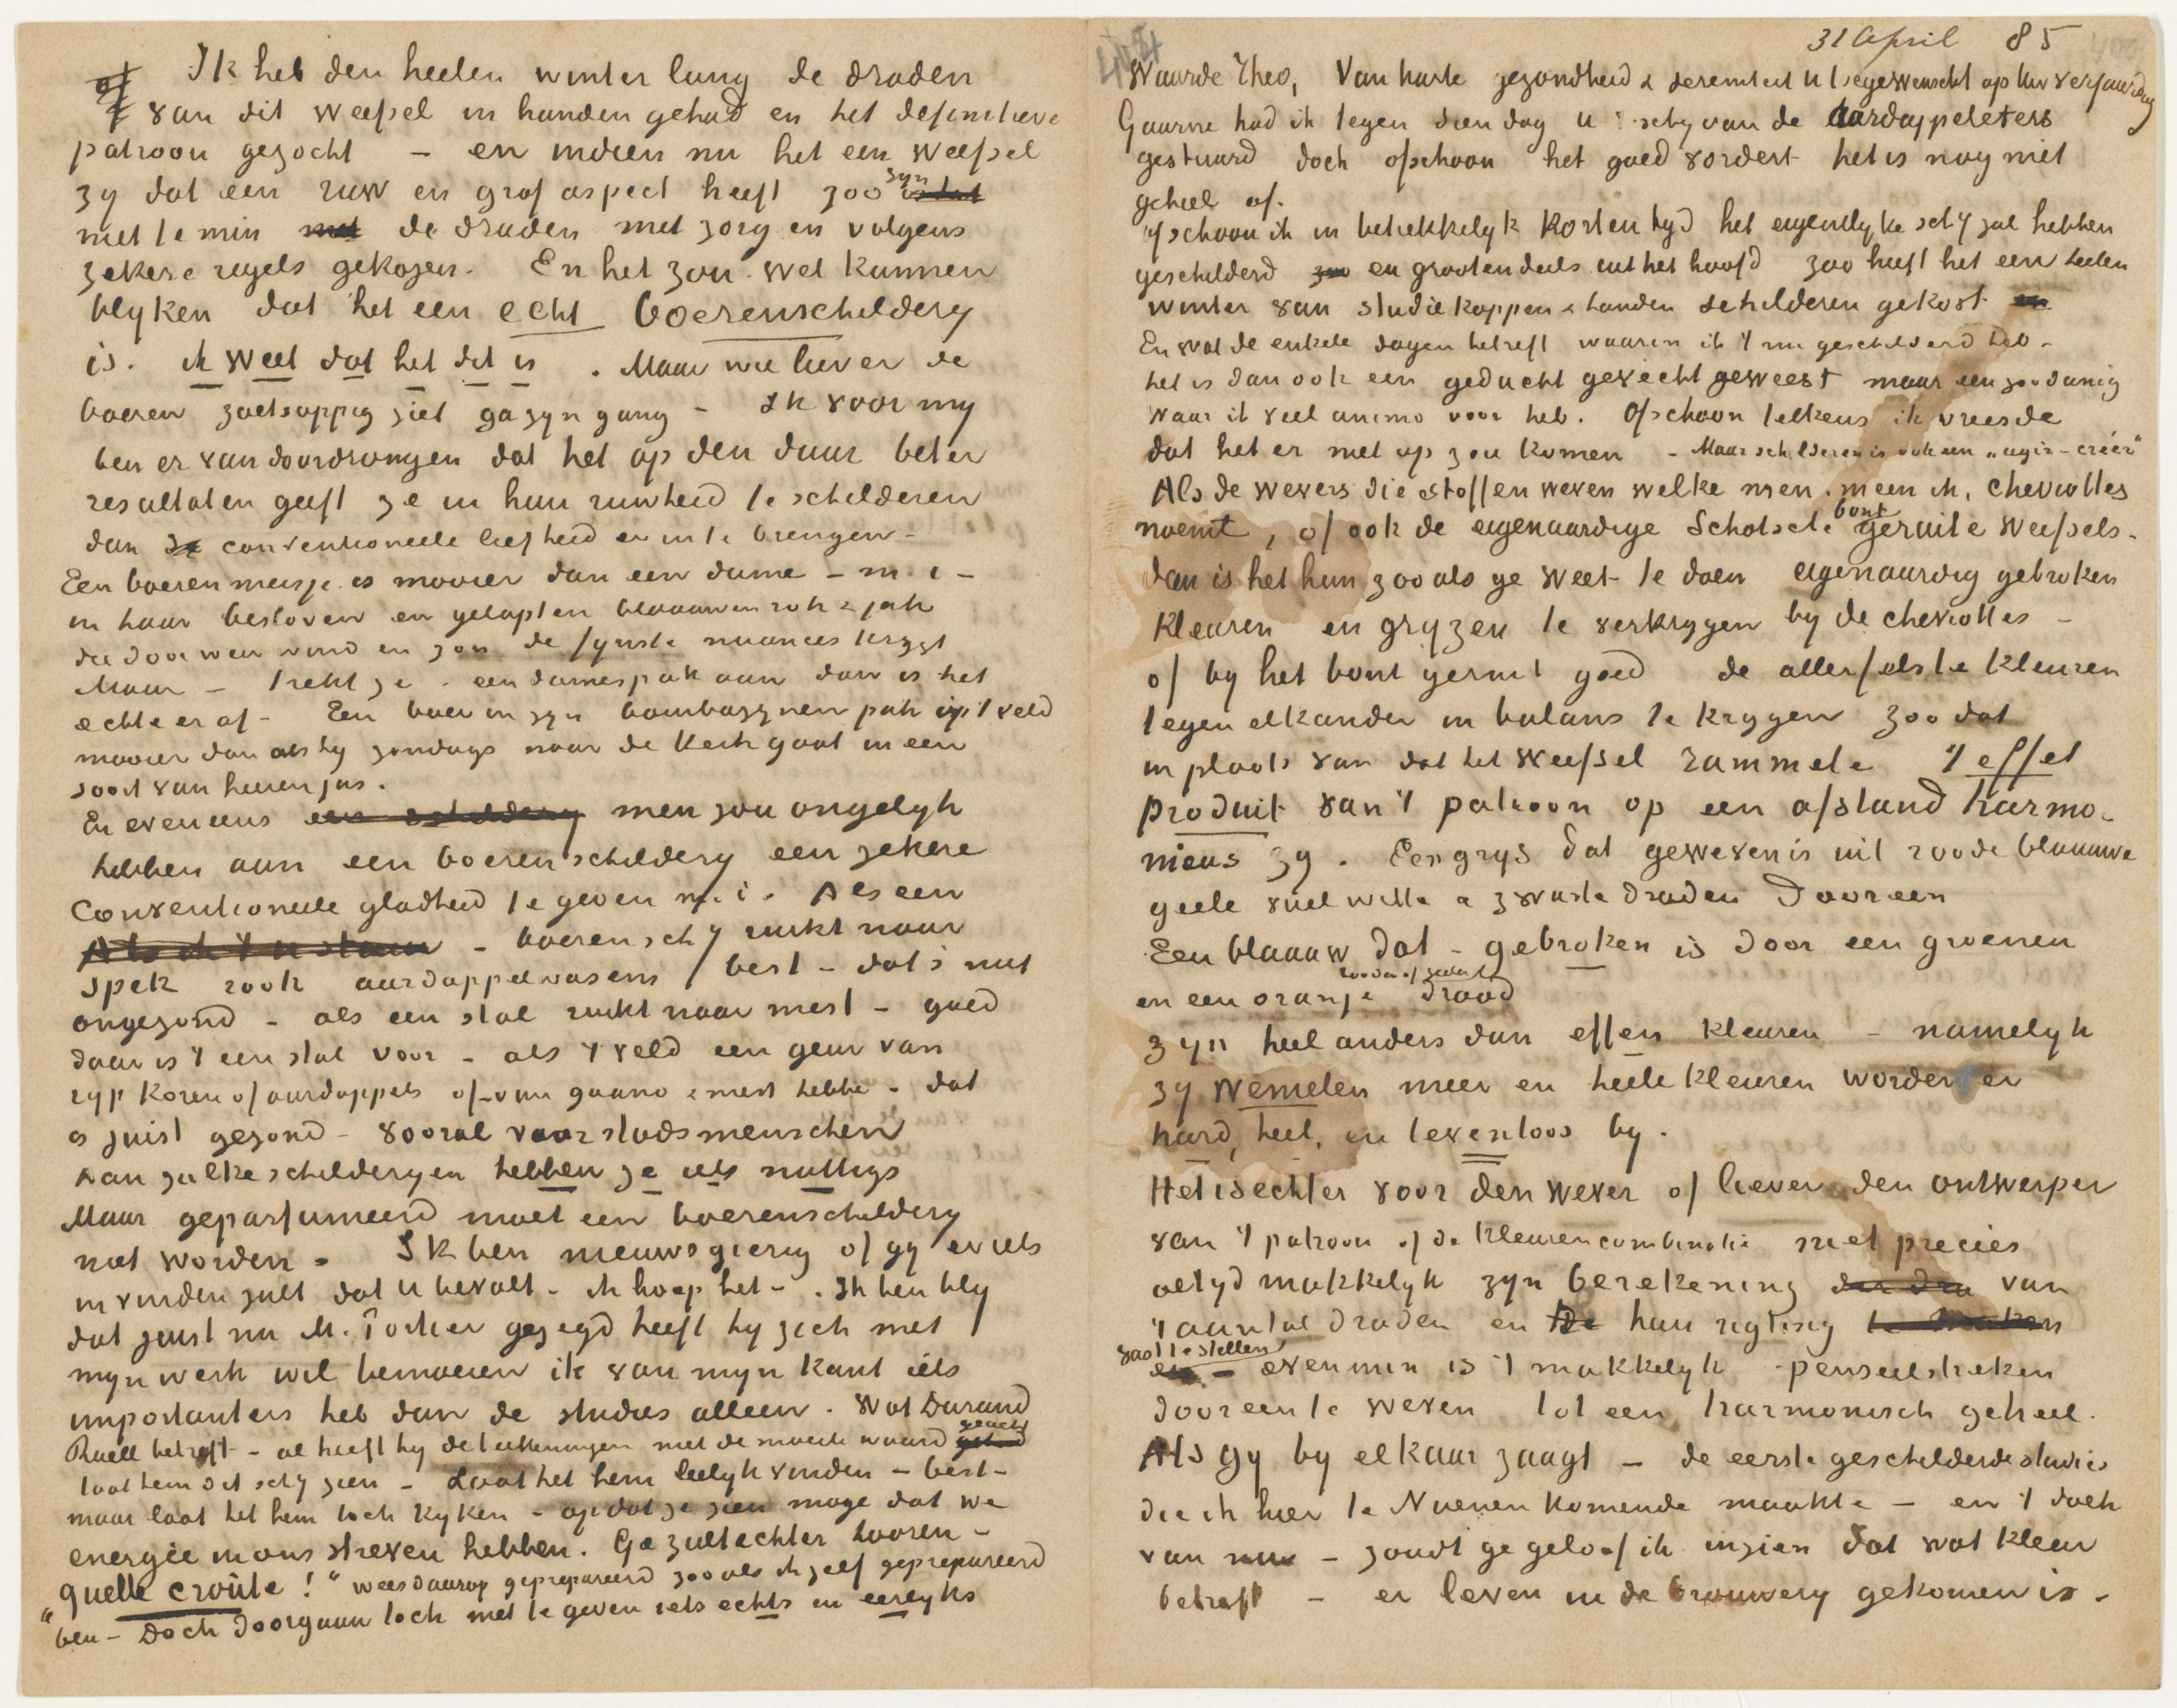 of Ik heb den heelen winter lang de draden
van dit weefsel in handen gehad en het definitieve
patroon gezocht – en indien nu het een weefsel
zy dat een ruw en grof aspect heeft zoo zyn
niettemin met de draden met zorg en volgens
zekere regels gekozen. En het zou wel kunnen
blyken dat het een echt boerenschildery
is. ik weet dat het dit is. Maar wie liever de
boeren zoetsappig ziet ga zyn gang – Ik voor my
ben er van doordrongen dat het op den duur beter
resultaten geeft ze in hun ruwheid te schilderen
dan de conventioneele liefheid er in te brengen –
Een boerenmeisje is mooier dan een dame – m. i –
in haar bestoven en gelapten blaauwen rok & jak
die door weer wind en zon de fynste nuances krygt
Maar – trekt ze – een damespak aan dan is het
echte er af – Een boer in zyn bombazynen pak op 't veld
mooier dan als hy zondags naar de kerk gaat in een
soort van heerenjas.
En eveneens een schildery men zou ongelyk
hebben aan een boerenschildery een zekere
conventioneele gladheid te geven m. i. Als een
boerensch'y ruikt naar
spek rook aardappelwasem / best – dat's niet
ongezond – als een stal ruikt naar mest – goed
daar is 't een stal voor – als 't veld een geur van
ryp koren of aardappels of van guano & mest hebbe – dat
is juist gezond – vooral voor stadsmenschen
Aan zulke schilderyen hebben ze iets nuttigs
Maar geparfumeerd moet een boerenschildery
niet worden. Ik ben nieuwsgierig of gy er iets
in vinden zult dat U bevalt – ik hoop het –. Ik ben bly
dat juist nu M. Portier gezegd heeft hy zich met
myn werk wil bemoeien ik van myn kant iets
importanters heb dan de studies alleen. Wat Durand
geacht
Ruell betreft – al heeft hy de teekeningen niet de moeite waard
laat hem dit sch'y zien – Laat het hem leelyk vinden – best –
maar laat het hem toch kyken – opdat ze zien moge dat we
energie in ons streven hebben. Ge zult echter hooren –
"quelle croûte!" wees daarop geprepareerd zooals ik zelf geprepareerd
ben – Doch doorgaan toch met te geven iets echts en eerlyks
31 April 85
Waarde Theo, Van harte gezondheid & sereniteit U toegewenscht op Uw verjaardag
Gaarne had ik tegen dien dag U 't sch'y van de Aardappeleters
gestuurd doch ofschoon het goed vordert het is nog niet
geheel af.
Ofschoon ik in betrekkelyk korten tyd het eigentlyke sch'y zal hebben
geschilderd zoo en grootendeels uit het hoofd zoo heeft het een heelen
winter van studiekoppen & handen schilderen gekost en
En wat de enkele dagen betreft waarin ik 't nu geschilderd heb –
het is dan ook een geducht gevecht geweest maar een zoodanig
waar ik veel animo voor heb. Ofschoon telkens ik vreesde
dat het er niet op zou komen – Maar schilderen is ook een „agir-créer"
Als de wevers die stoffen weven welke men, meen ik, cheviottes
bont
noemt, of ook de eigenaardige Schotsche geruite weefsels –
dan is het hun zooals ge weet te doen eigenaardig gebroken
kleuren en gryzen te verkrygen by de cheviottes –
of by het bont geruit goed de allerfelste kleuren
tegen elkander in balans te krygen zoodat
in plaats van dat het weefsel rammele 't effet
produit van 't patroon op een afstand harmo-
nieus zy. Een grys dat geweven is uit roode blaauwe
geele vuil witte & zwarte draden dooreen
Een blaauw dat – gebroken is door een groenen
rooden of geelen
en een oranje draad
zyn heel anders dan effen kleuren – namelyk
zy wemelen meer en heele kleuren worden er
hard, heel, en levenloos by.
Het is echter voor den wever of liever den ontwerper
van 't patroon of de kleurencombinatie niet precies
altyd makkelyk zyn berekening der dra van
't aantal draden en de hun rigting te maken
vast te stellen
en – evenmin is 't makkelyk penseelstreken
dooreen te weven tot een harmonisch geheel.
Als gy by elkaar zaagt – de eerste geschilderde studies
die ik hier te Nuenen komende maakte – en 't doek
van nu – zoudt ge geloof ik inzien dat wat kleur
betreft – er leven in de brouwery gekomen is –